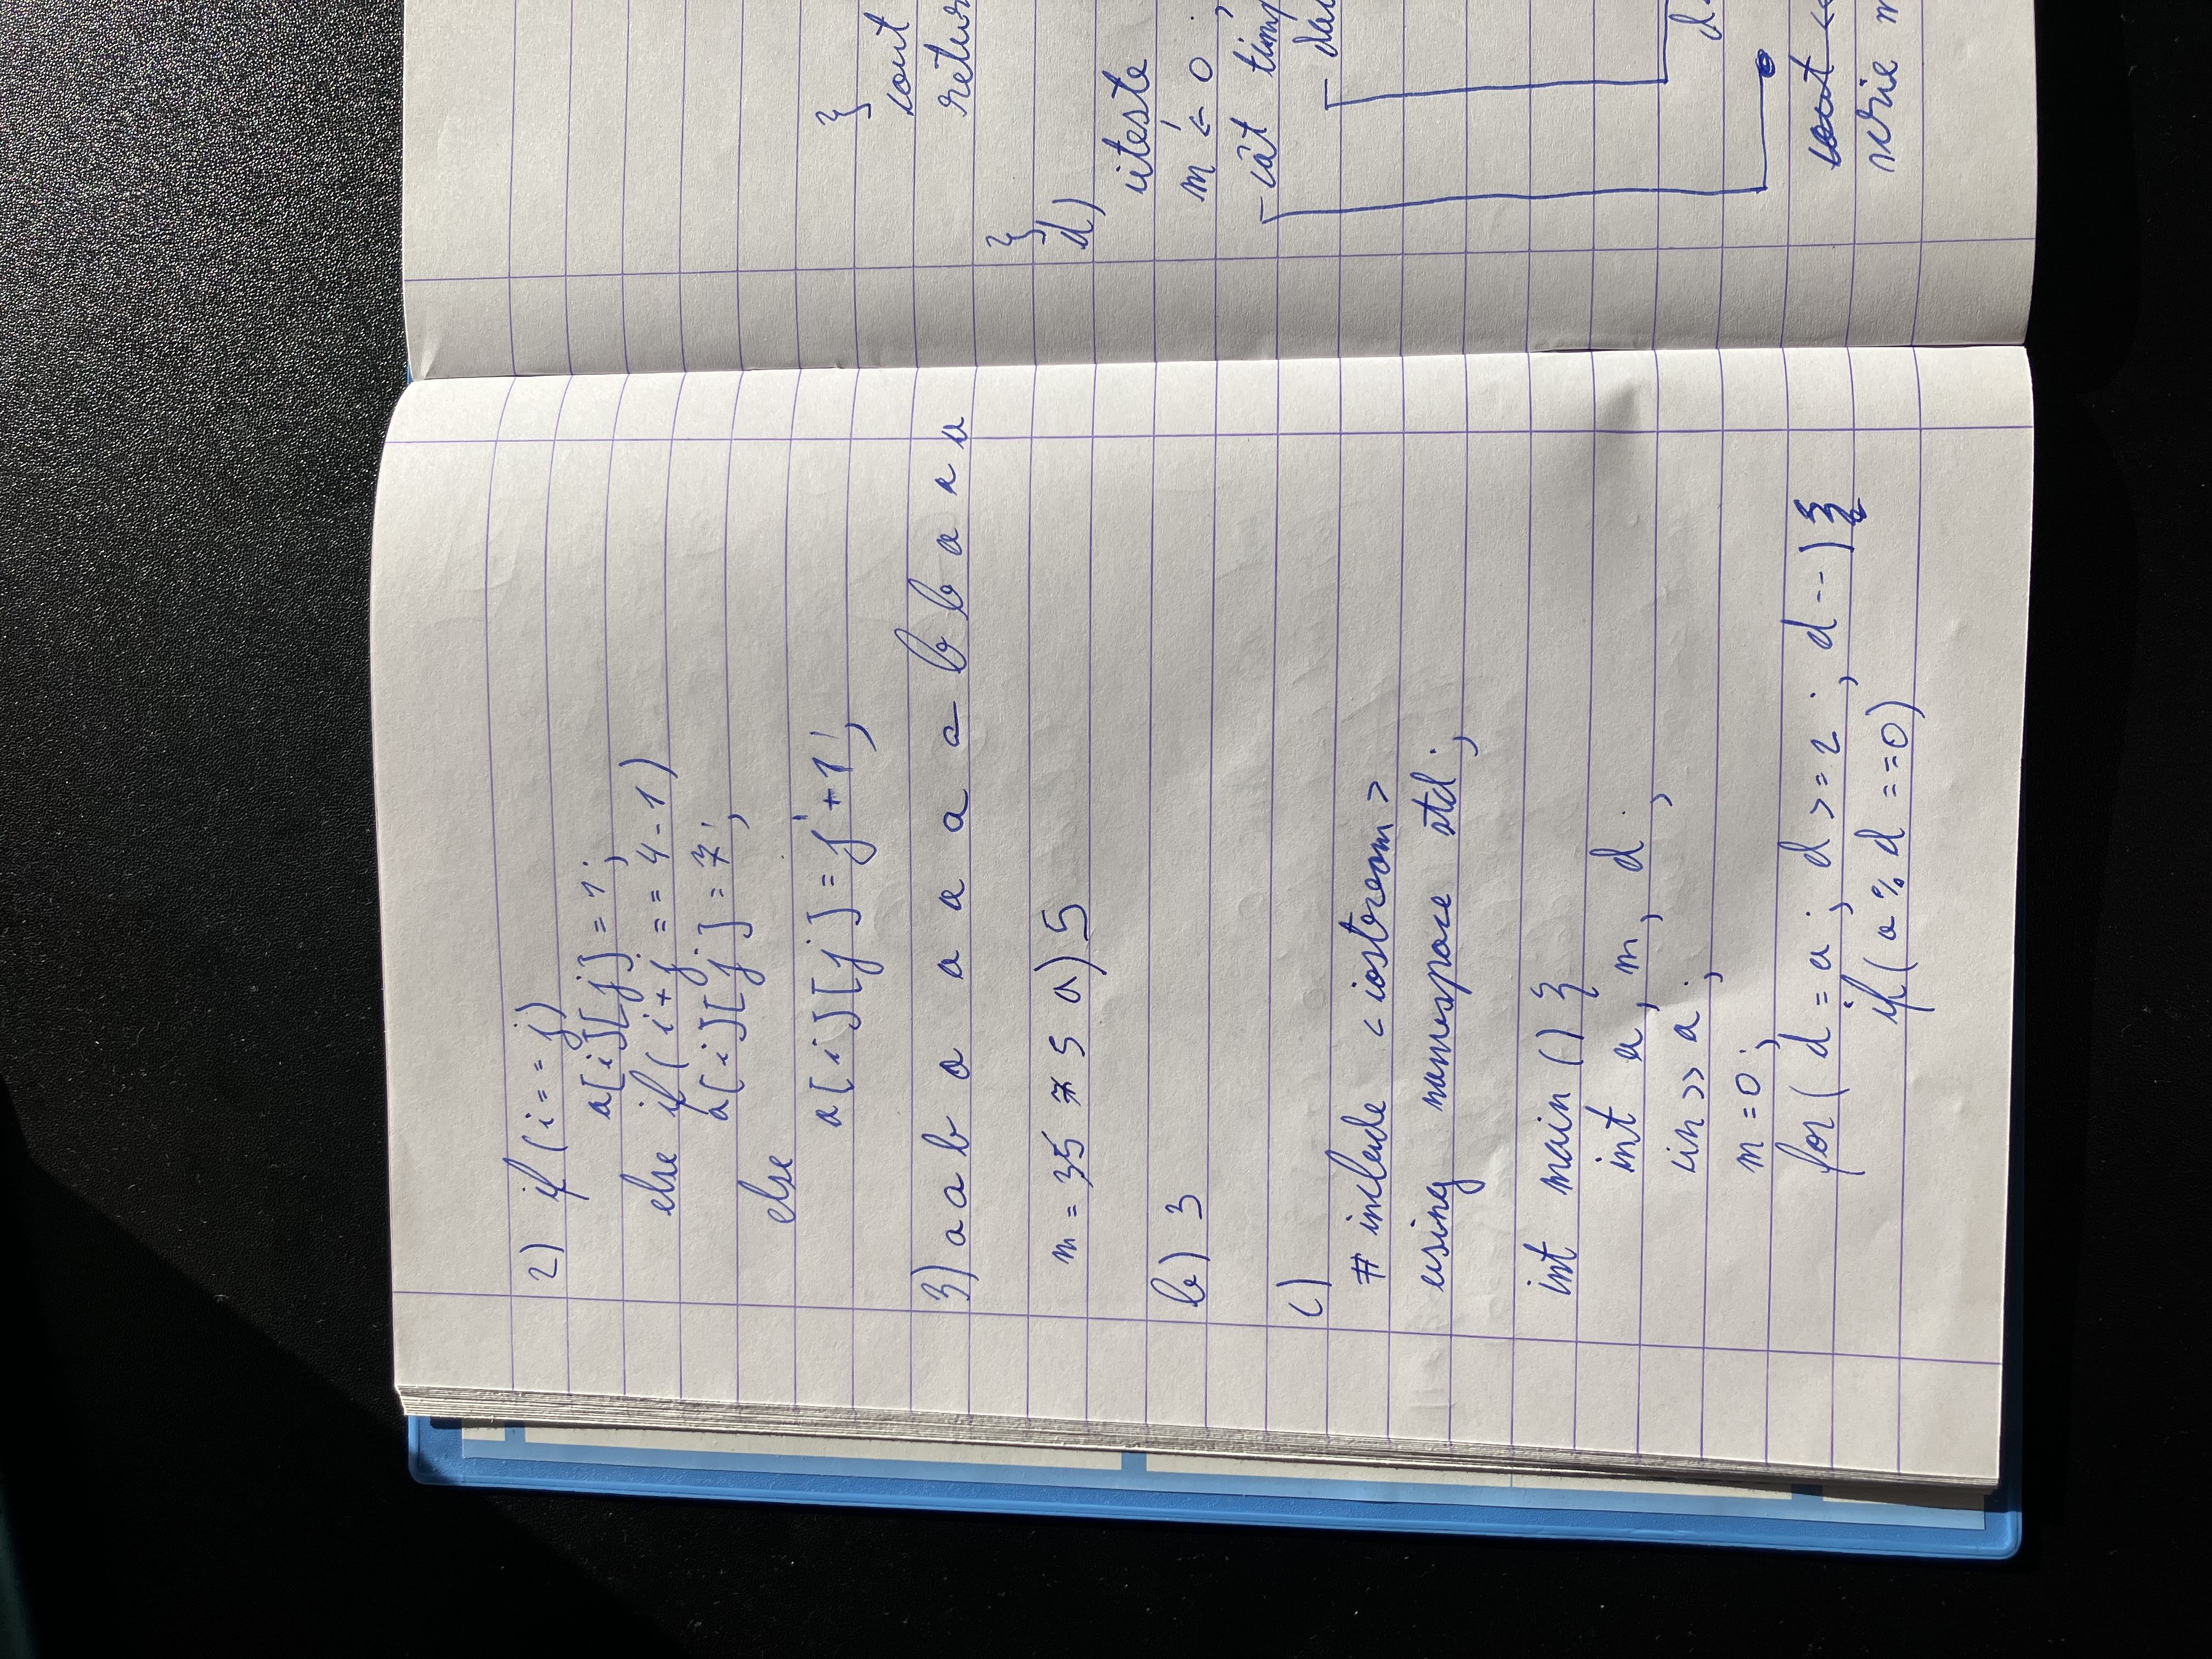 2) if (i == j)
a[i][j] = 1;
else if (i + j == 4 - 1)
a[i][j] = 7;
else
a[i][j] = j + 1;
3) a a b a a a a a b b a a a
m = 35 7 5 a) 5
b) 3
c)
# include <iostream>
using namespace std;
int main () {
int a, m, d;
cin >> a;
m = 0;
for (d = a; d >= 2; d--) {
if (a % d == 0)
}
cout
return
}
d)
citește
m ← 0;
cât timp
d
scrie m